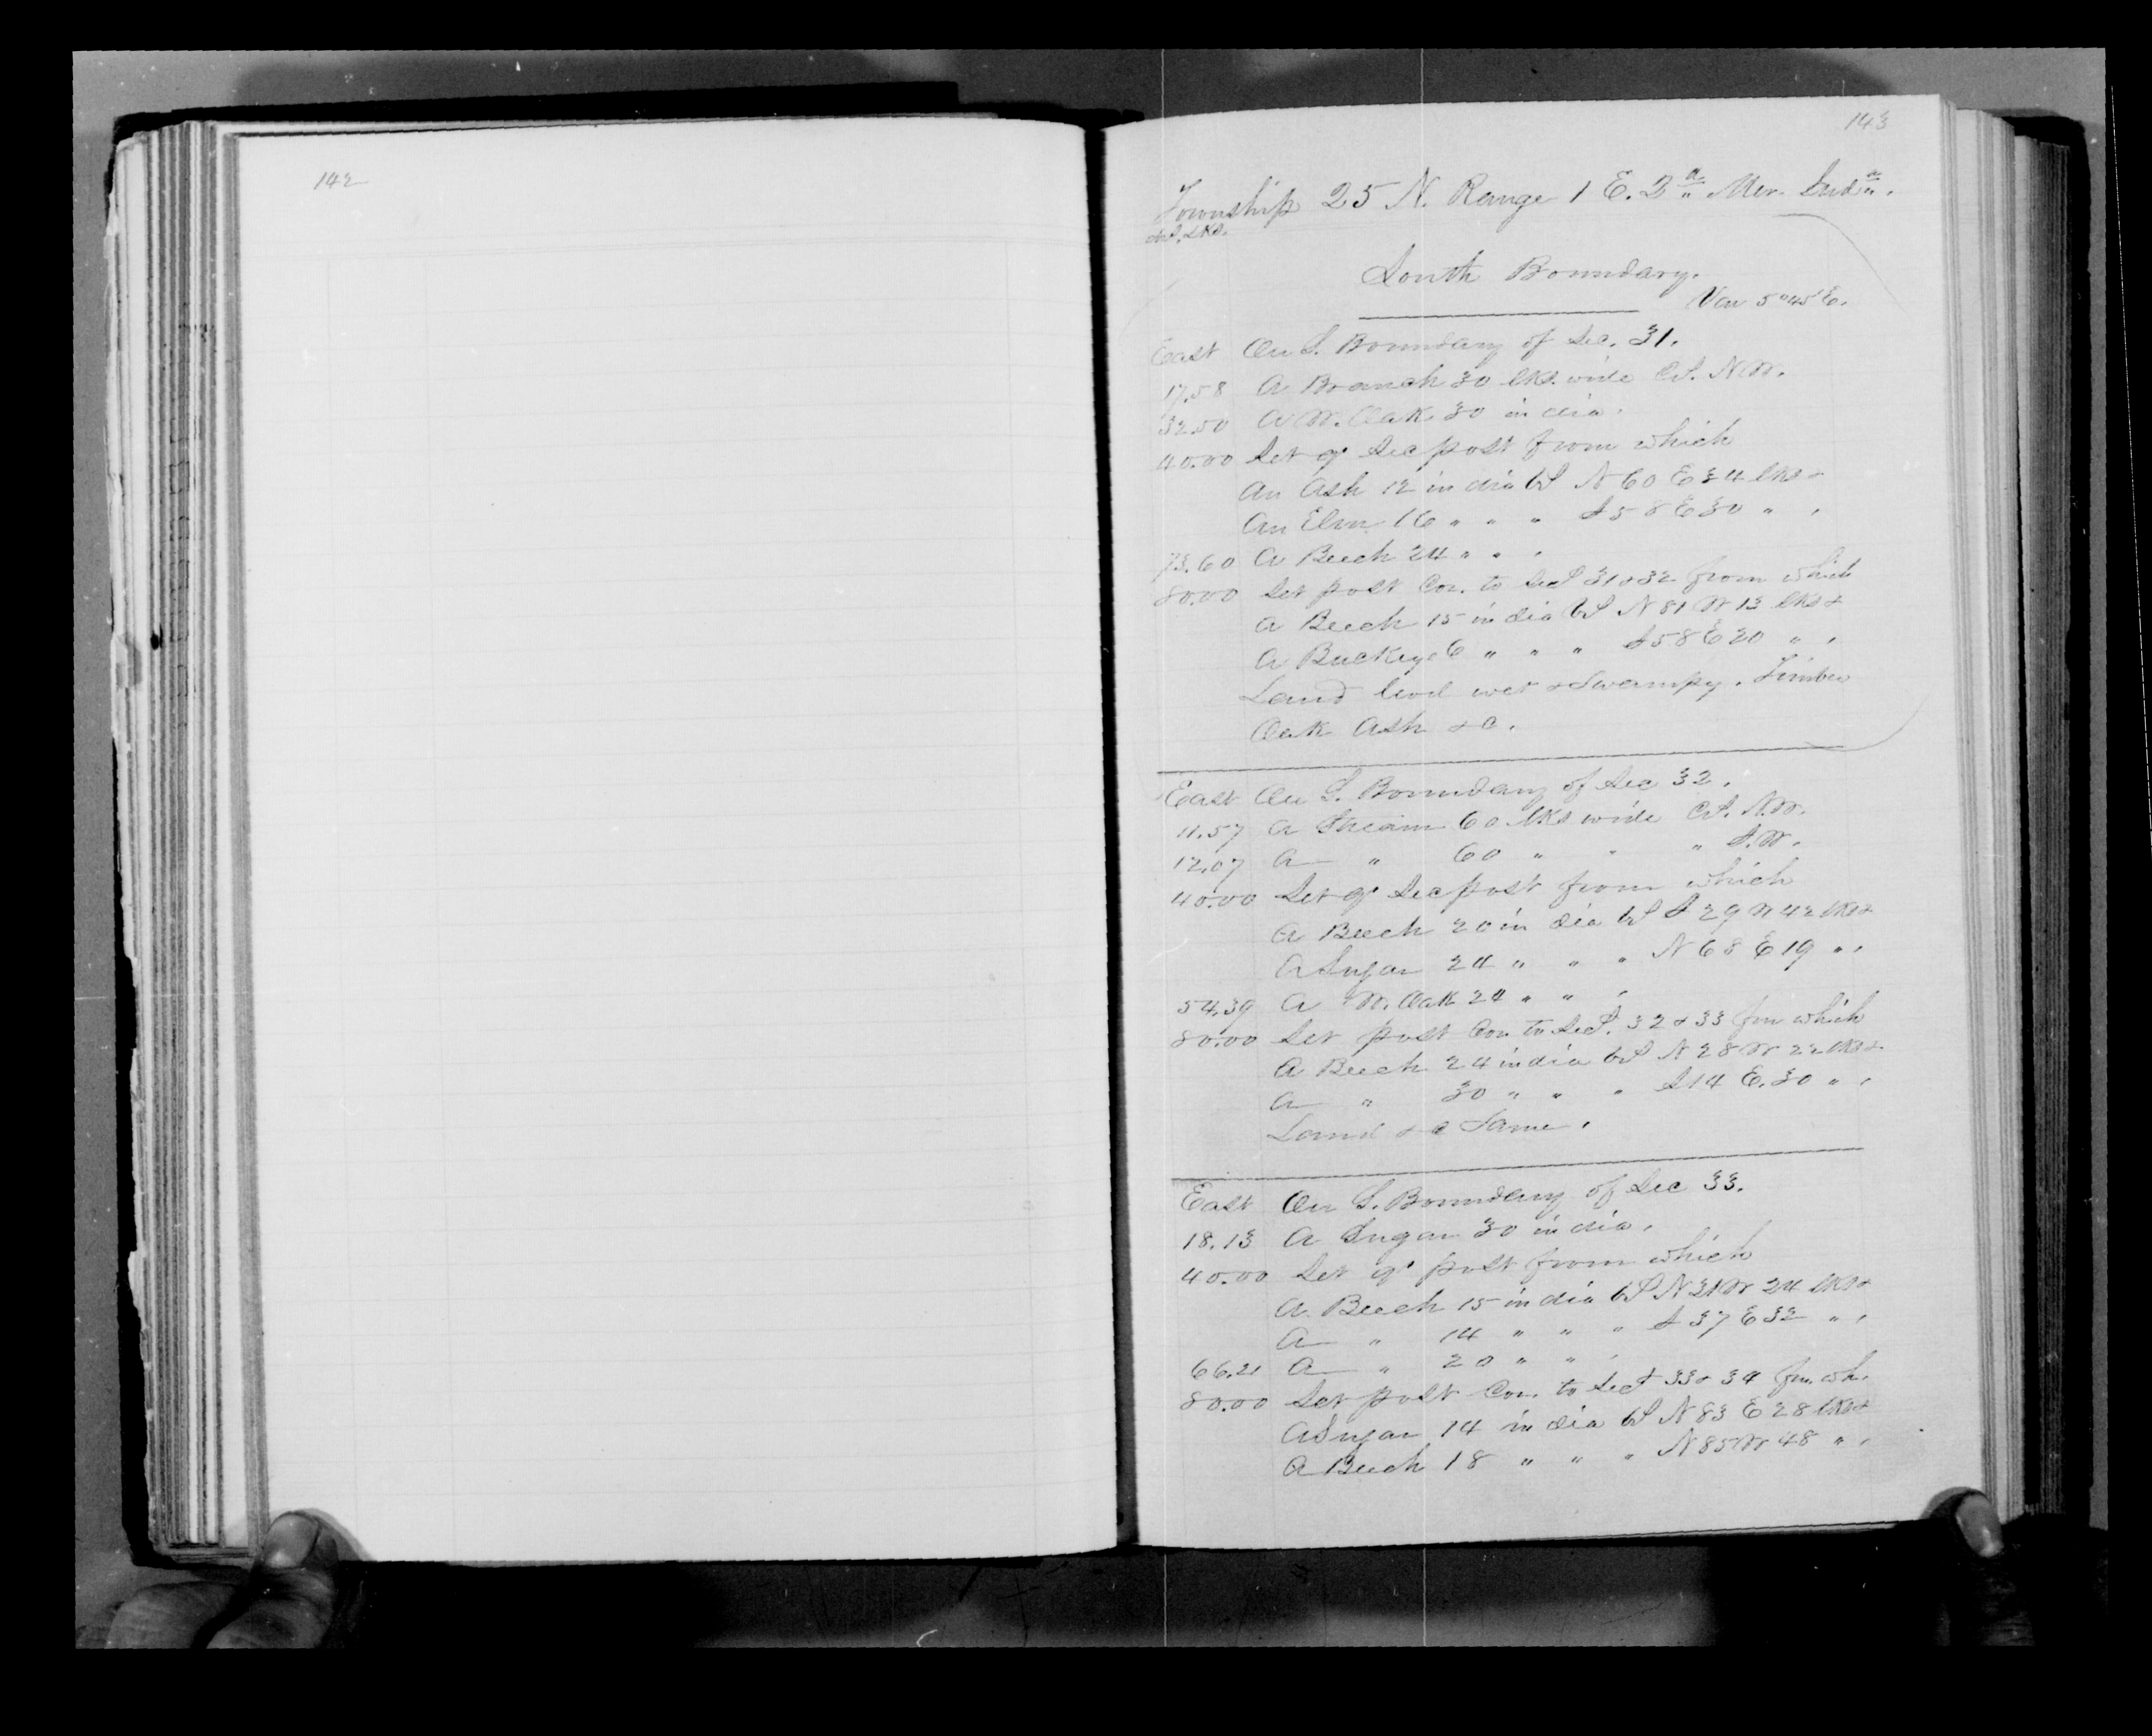 142
143
Township 25 N. Range 1 E. 2d Mer. Inda.
chs. lks.
South Boundary.
Var 5°45' E.
East On S. Boundary of Sec. 31.
17.58 A Branch 30 lks. wide C.S. N.W.
32.50 A W. Oak 30 in dia.
40.00 Set qr Sec post from which
An Ash 12 in dia bs N 60 E 34 lks &
An Elm 16 " " " S 58 E 30 " ,
73.60 A Beech 24 " " ,
80.00 Set post Cor. to Secs 31 & 32 from which
A Beech 15 in dia bs N 81 W 13 lks &
A Buckeye 6 " " " S 58 E 20 " ,
Land level wet & Swampy. Timber
Oak Ash &c.
East On S. Boundary of Sec 32.
11.57 A Stream 60 lks wide C.S. N.W.
12.07 A " 60 " " " S.W.
40.00 Set qr Sec post from which
A Beech 20 in dia bs S 29 W 42 lks &
A Sugar 24 " " " N 68 E 19 " ,
54.39 A W. Oak 24 " " ,
80.00 Set post Cor to Secs. 32 & 33 fm which
A Beech 24 in dia bs N 28 W 22 lks &
A " 30 " " " S 14 E. 30 " ,
Land &c Same.
East On S. Boundary of Sec 33.
18.13 A Sugar 30 in dia.
40.00 Set qr post from which
A Beech 15 in dia bs N 31 W 24 lks &
A " 14 " " " S 37 E 32 " ,
66.21 A " 20 " " ,
80.00 Set post Cor. to Secs 33 & 34 fm. wh.
A Sugar 14 in dia bs N 83 E 28 lks &
A Beech 18 " " " N 85 W 48 " ,